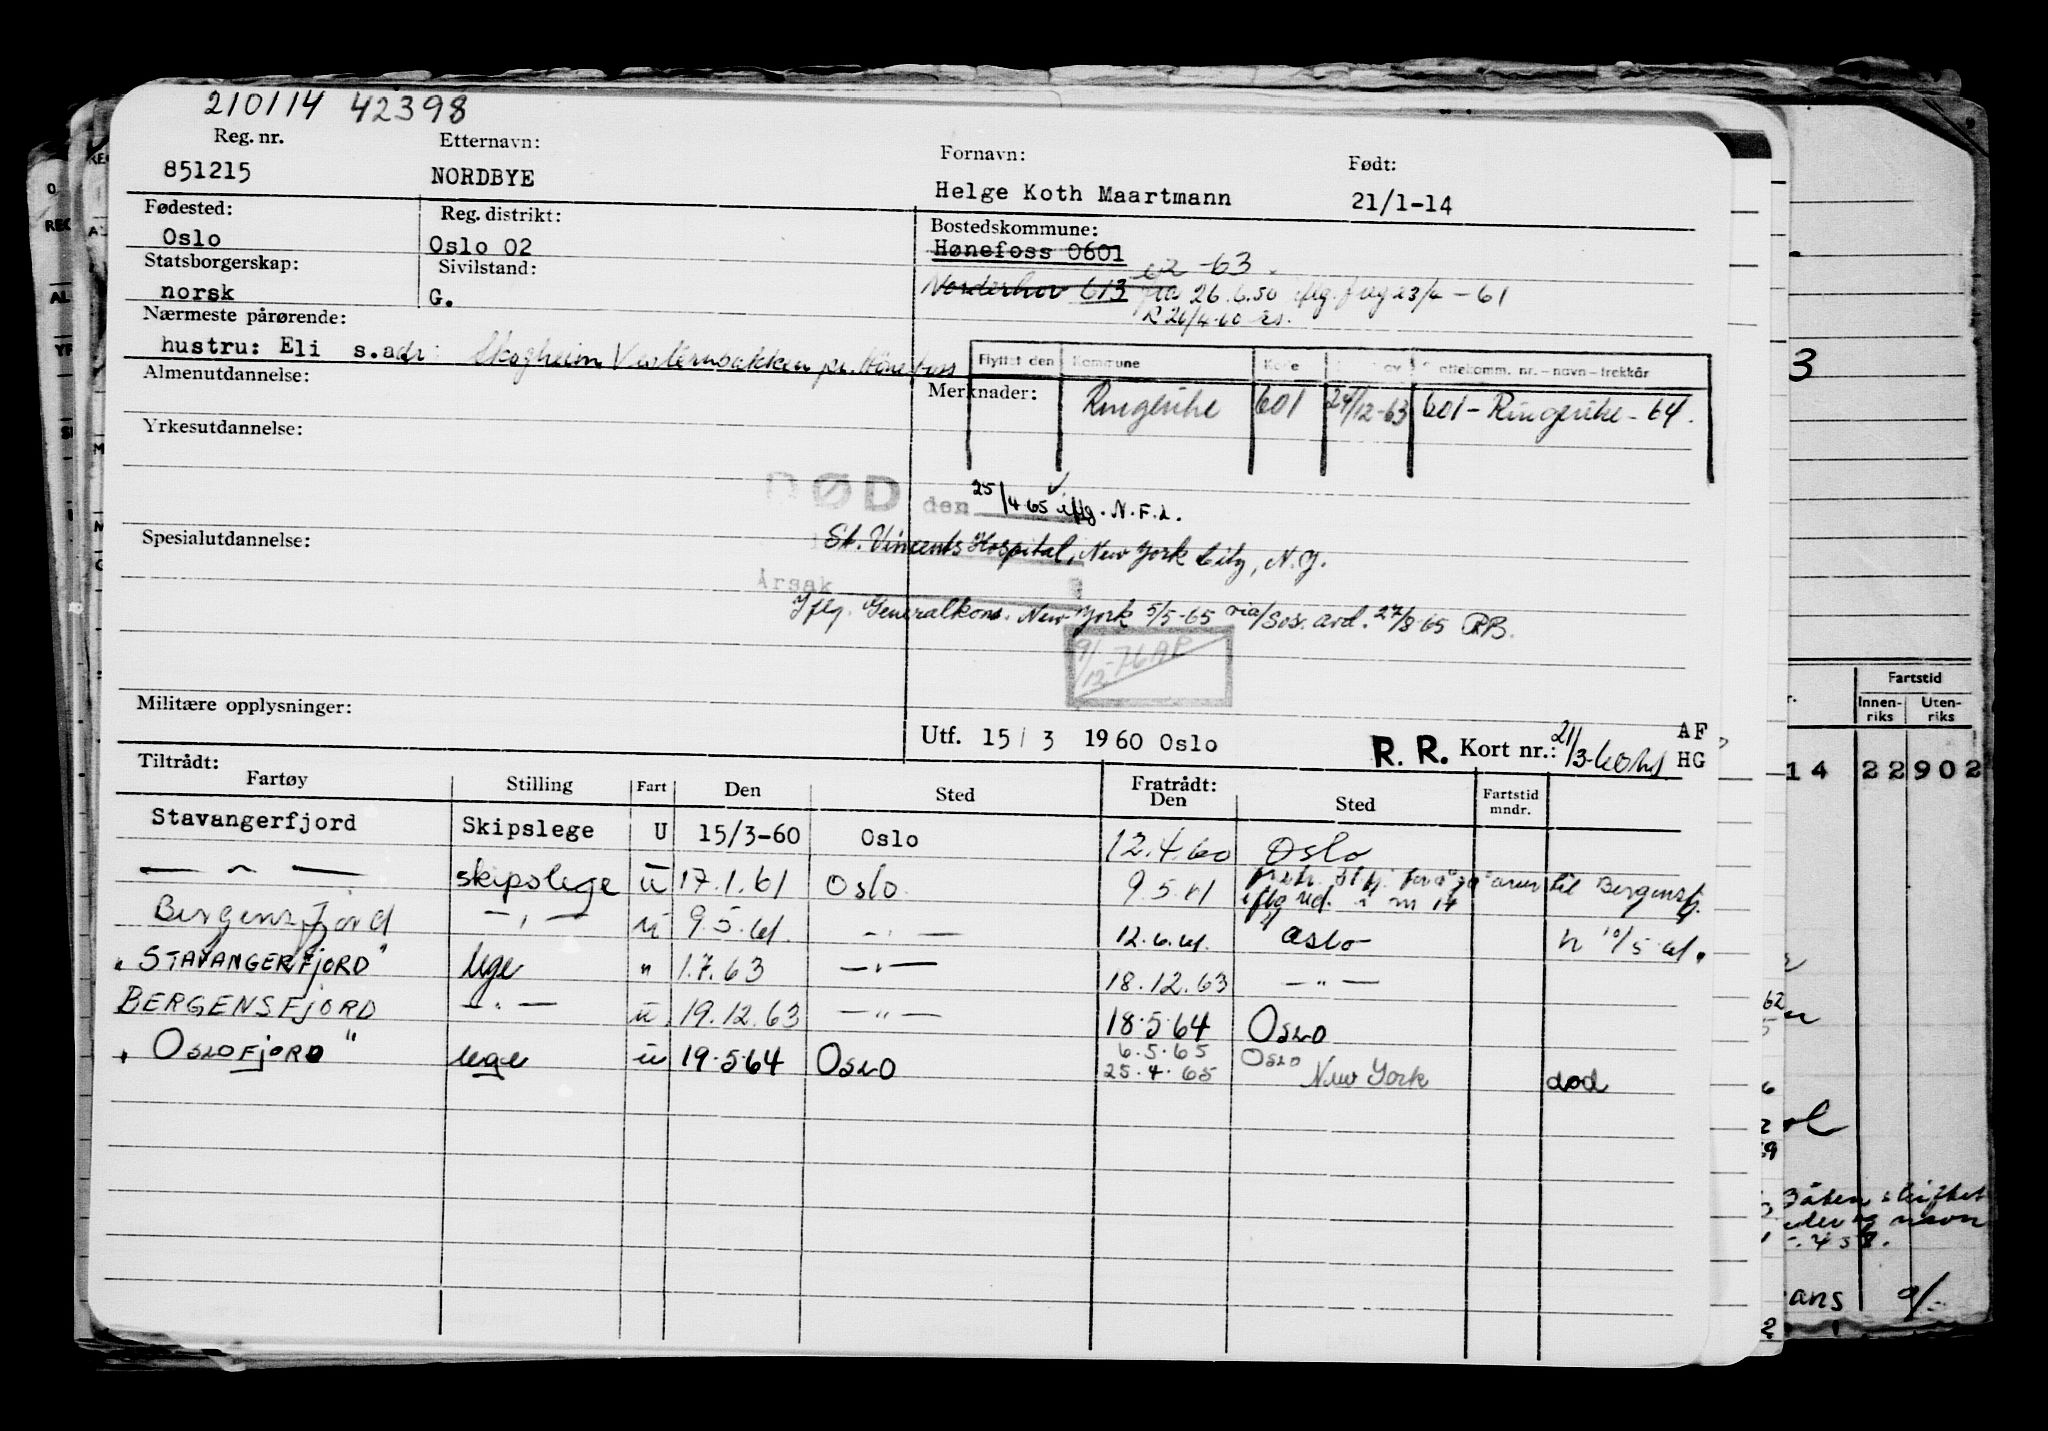 210114 42398
Reg. nr. Etternavn: Fornavn: Født:
851215 NORDBYE Helge Koth Maartmann 21/1-14
Fødested: Reg. distrikt: Bostedskommune:
Oslo Oslo 02 Hønefoss 0601
Statsborgerskap: Sivilstand: 62-63.
norsk G. Norderhov 613 fra 26.6.50 iflg. freg 23/6-61
R 26/4-60
Nærmeste pårørende:
hustru: Eli s.adr: Skogheim Vesternbakken pr. Hønefoss
Flyttet den Kommune Kode nr. - navn - trekkår
Almenutdannelse: Merknader: Ringerike 601 24/12-63 601 - Ringerike - 64.
Yrkesutdannelse:
DØD den 25/4 65 iflg. N.F.d.
Spesialutdannelse: St. Vincents Hospital, New York City, N.Y.
Årsak
Iflg. Generalkons. New York 5/5-65 via/Sos. avd. 27/8-65 RB.
9/12-76
Militære opplysninger:
Utf. 15/3 1960 Oslo R. R. Kort nr.: 21/3-60 AF
HG
Tiltrådt: Fratrådt:
Fartøy Stilling Fart Den Sted Den Sted Fartstid mndr.
Stavangerfjord Skipslege U 15/3-60 Oslo 12.4.60 Oslo
— " — skipslege u 17.1.61 Oslo 9.5.61 til Bergensfj.
iflg
Bergensfjord — " — u 9.5.61. — " — 12.6.61. Oslo 10/5 61.
"STAVANGERFJORD" lege " 1.7.63 — " — 18.12.63 — " —
BERGENSFJORD — " — u 19.12.63 — " — 18.5.64 OSLO
"OSLOFJORD" lege u 19.5.64 OSLO 6.5.65 OSLO
25.4.65 New York død
3
Fartstid
Innenriks Utenriks
14 22902